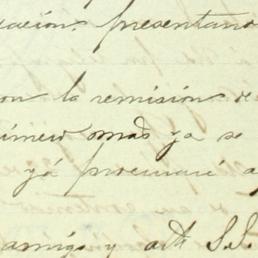 acion. presentando
on la remisión de
úmero mas ya se
ya procuraré a
amigo y att S.S.